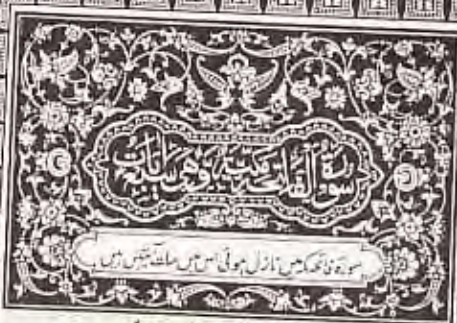 سورة الفاتحة مكية وهي سبع آيات
سورۂ فاتحہ مکہ میں نازل ہوئی اس میں سات آیتیں ہیں